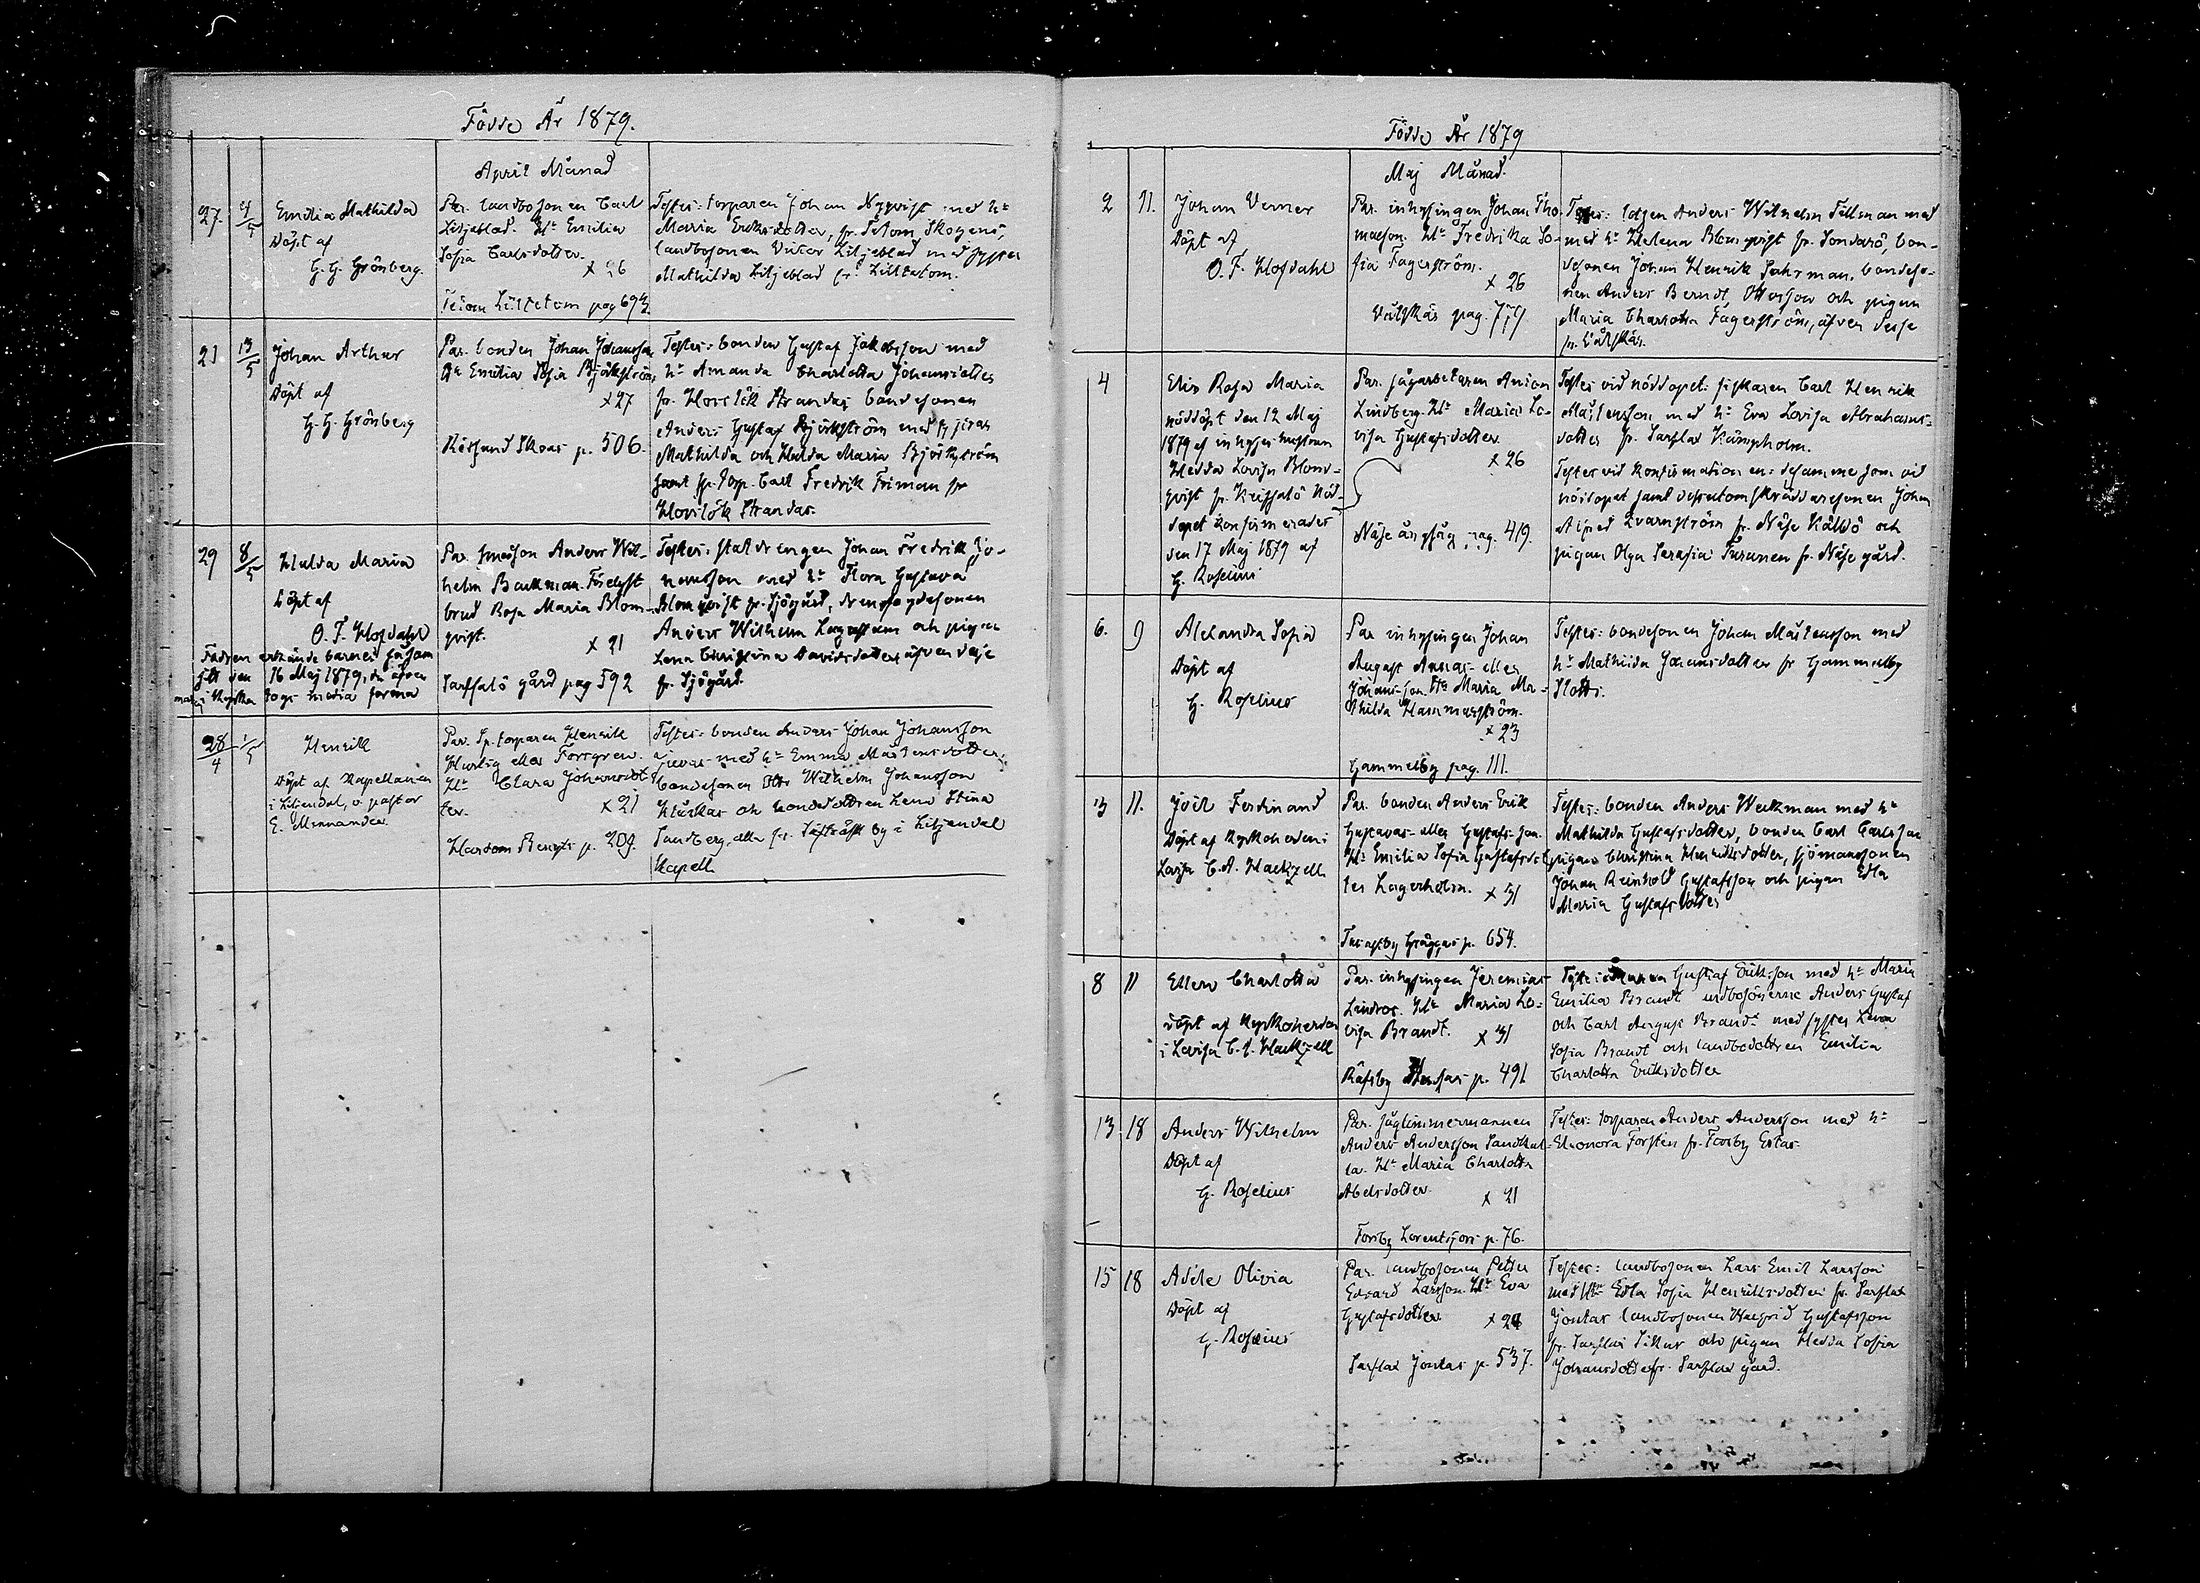 Födde År 1879.
April Månad
27. 4/5 Emilia Mathilda
Döpt af
G. G. Grönberg.
Par. landbosonen Carl
Liljeblad. H:u Emilia
Sofia Carlsdotter.
x 26
Tetom Lilltetom pag 694.
Testes: torparen Johan Nyqvist med h:u
Maria Eriksdotter, fr. Tetom Skogens,
landbosonen Victor Liljeblad med syster
Mathilda Liljeblad fr. Lilltetom.
21 13/5 Johan Arthur
Döpt af
G. G. Grönberg
Par. bonden Johan Johansson
H:u Emilia Sofia Björkström
x 27
p. 506.
Testes: bonden Gustaf Jakobsson med
h:u Amanda Charlotta Johansdotter
fr. Hovilök Strandas bondesonen
Anders Gustaf Björkström med systrar
Mathilda och Hulda Maria Björkström
samt Carl Fredrik Friman fr
Hovilök Strandas.
29 8/5 Hulda Maria
Döpt af
O. F. Hofdahl
Fadren erkände barnet såsom
sitt den 16 Maj 1879, då äfven
togs media forma
Par. Anders Wil-
helm Backman. Förelofst
brud Rosa Maria Blom-
qvist.
x 21
Sarfsalö gård pag 592
Testes: stalldrengen Johan Fredrik Jo-
hansson med h:u Flora Gustava
Blomqvist fr. Sjögård,
Anders Wilhelm och pigan
Lena Christina Davidsdotter äfven desse
fr. Sjögård.
28/4 1/5 Henrik
Döpt af Kapellanen
i Liljendal, v. pastor
E. Monnander.
Par. Sp. torparen Henrik
Hurtig eller Forsgren.
H:u Clara Johansdot-
ter.
x 21
p. 209.
Testes: bonden Anders Johan Johansson
med h:u Emma Mårtensdotter,
bondesonen Otto Wilhelm Johansson
och bondedottren Lena Stina
Sandberg, alla fr. by i Liljendal
Kapell
Födde År 1879
Maj Månad.
2 11. Johan Verner
Döpt af
O. F. Hofdahl
Par. inhysingen Johan Tho-
masson. H:u Fredrika So-
fia Fagerström.
x 26
Våtskär pag. 779
Testes: lotsen Anders Wilhelm Tillman med
med h:u Helena Blomqvist fr. Sondarö, bon-
desonen Johan Henrik Fahrman, bondeso-
nen Anders Berndt Ottosson och pigan
Maria Charlotta Fagerström, äfven desse
fr. Våtskär.
4 Elin Rosa Maria
nöddöpt den 12 Maj
1879 af inhyses hustrun
Hedda Lovisa Blom-
qvist fr. Keipsalö Nöd-
dopet konfirmerades
den 17 Maj 1879 af
G. Roselius
Par. sågarbetaren Anton
Lindberg. H:u Maria Lo-
visa Gustafsdotter
x 26
Näse ångsåg pag. 419.
Testes vid nöddopet: fiskaren Carl Henrik
Mårtensson med h:u Eva Lovisa Abrahams-
dotter fr. Sarflax Kämpholm.
Testes vid konfirmationen: desamme som vid
nöddopet samt dessutom skräddaresonen Johan
Alfred Qvarnström fr. Näse Källdö och
pigan Olga Serafia Turunen fr. Näse gård.
6. 9 Alexandra Sofia
Döpt af
G. Roselius
Par inhysingen Johan
August Annas- eller
Johansson. H:u Maria Ma-
thilda Hammarström.
x 23
Gammelby pag. 111.
Testes: bondesonen Johan Mårtensson med
h:u Mathilda Johansdotter fr Gammelby
Slotts.
3 11. Joel Ferdinand
Döpt af Kyrkoherden i
Lovisa C. A. Hackzell
Par. bonden Anders Erik
Gustavas- eller Gustafsson.
H:u Emilia Sofia Gustafsdot-
ter Lagerholm. x 31
p. 654.
Testes: bonden Anders Weckman med h:u
Mathilda Gustafsdotter, bonden Carl Carlsson
pigan Christina Henriksdotter, sjömanssonen
Johan Reinhold Gustafsson och pigan Edla
Maria Gustafsdotter
8 11 Ellen Charlotta
döpt af Kyrkoherden
i Lovisa C. A. Hackzell
Par. inhysingen Jeremias
Lindroos. H:u Maria Lo-
visa Brandt. x 31
Räfsby p. 491
Gustaf Eriksson med h:u Maria
Emilia Brandt landbosönerne Anders Gustaf
och Carl August Brandt med syster Lena
Sofia Brandt och landbodottren Emilia
Charlotta Eriksdotter
13 18 Anders Wilhelm
Döpt af
G. Roselius
Par. sågtimmermannen
Anders Andersson Sandkul-
la. H:u Maria Charlotta
Abelsdotter.
x 21
Forsby Lorentssons p. 76.
Testes: torparen Anders Andersson med h:u
Eleonora Forsten fr. Forsby Estas
15 18 Adéle Olivia
Döpt af
G. Roselius
Par. landbosonen Petter
Edvard Larsson. H:u Eva
Gustafsdotter x 24
Sarflax Jontas p. 537.
Testes: landbosonen Lars Emil Larsson
med H:u Edla Sofia Henriksdotter fr. Sarflax
Jontas landbosonen Walfrid Gustafsson
fr. Sarflax Sikus och pigan Hedda Sofia
Johansdotter fr. Sarflax gård.